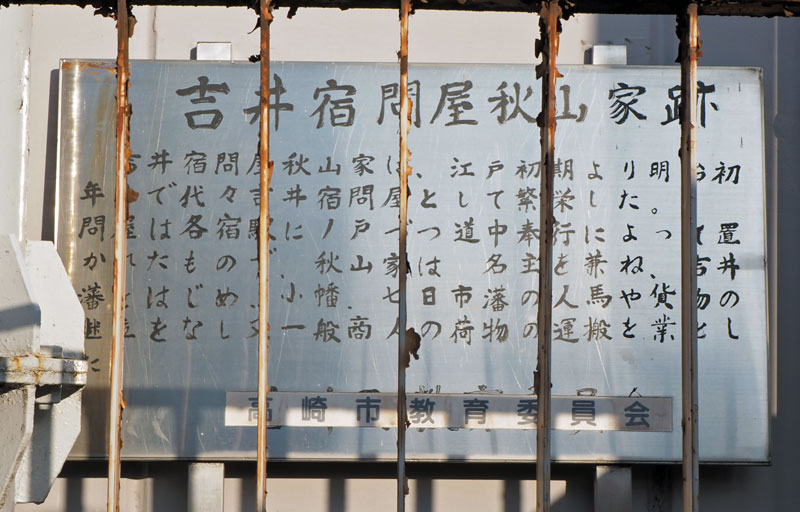 吉井宿問屋秋山家跡
吉井宿問屋秋山家は、江戸初期より明治初
年まで代々吉井宿問屋として繁栄した。
問屋は各宿駅に一戸づつ道中奉行によって置
かれたものだが、秋山家は名主を兼ね、吉井
藩をはじめ、小幡、七日市藩の人馬や貨物の
継立をなし又一般商人の荷物の運搬を業とし
た
高崎市教育委員会